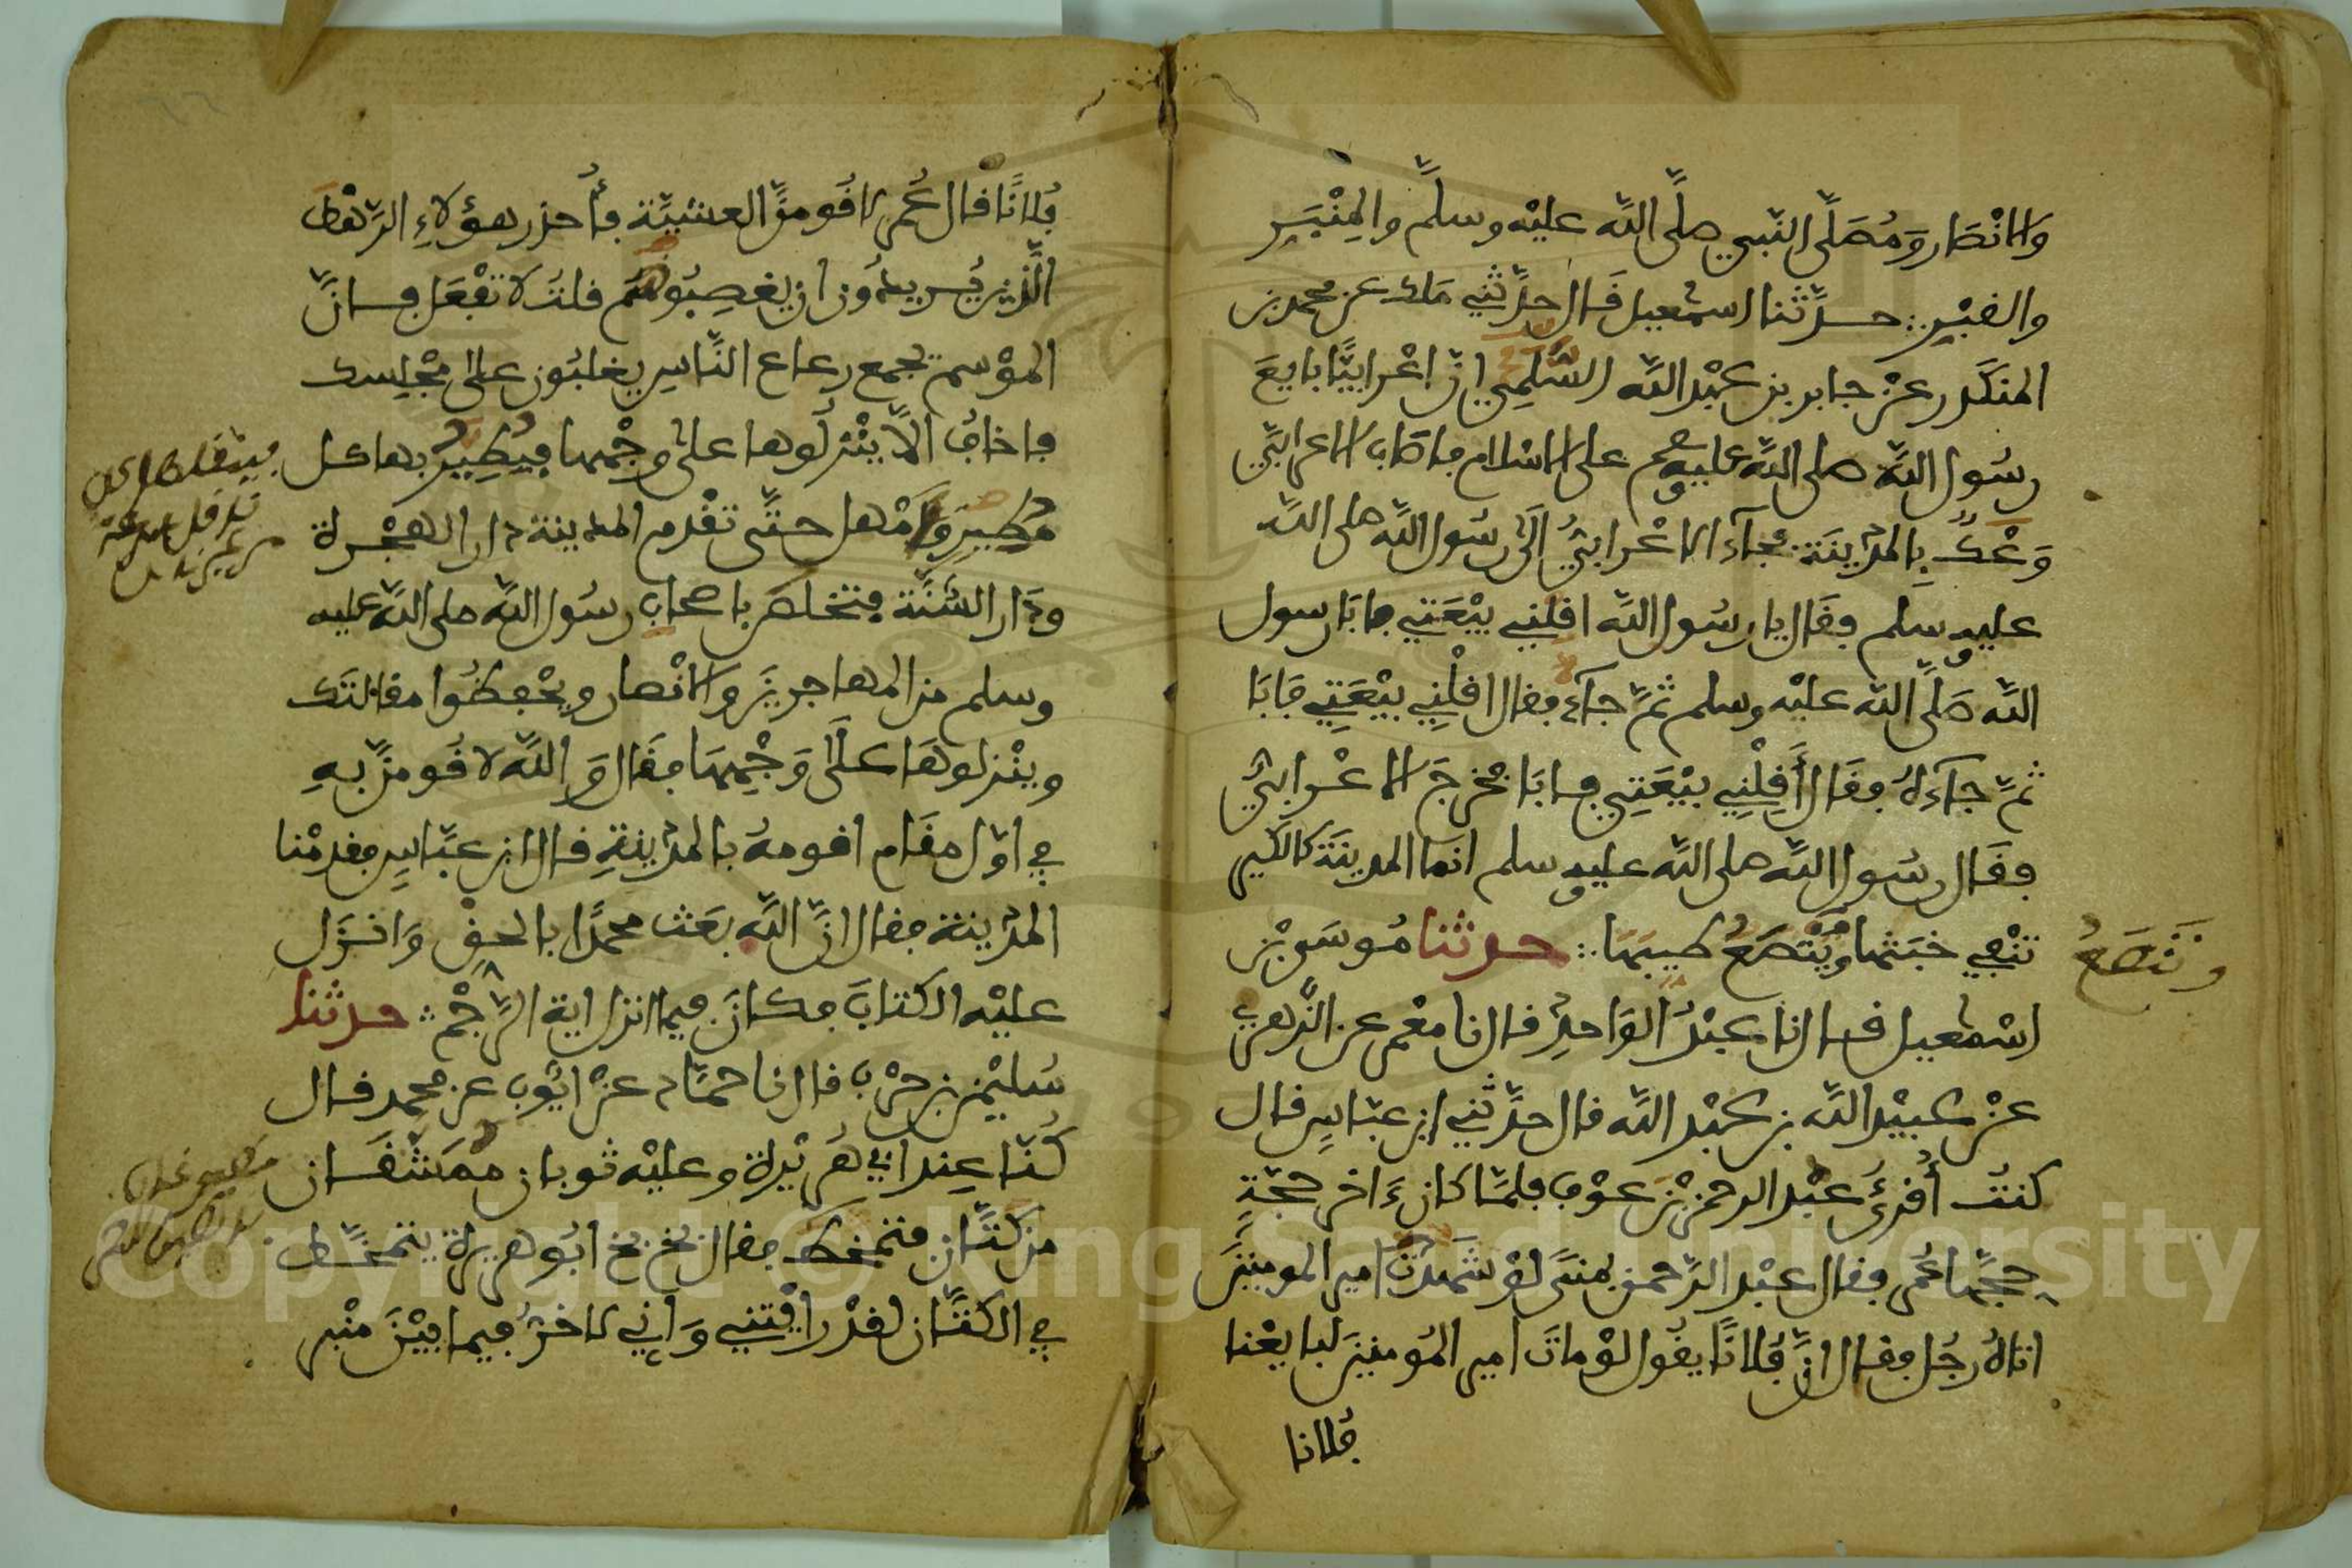 والانْصَار وَمُصَلَّى النّبي صلَّى اللّه عليْه وسلمَّ والمِنْبَر
والقبْر ∴ حدَّثنا اسمٰعيل قَال حدَّثني مَلك عن محمد بن
المنكَدر عنْ جابر بن عبْد اللّه السَّلَمِي انّ اعْرابيًّا بايعَ
رسُول اللّه صلى اللّه عليه وسلم على الاسْلام فاصَاب الاعرابيَّ
وَعْكٌ بِالمَدِينَة فجَآءَ الاعْرابيُّ الَى رسُول اللّه صلى اللّه
عليه وسلم فقَال يا رسُول اللّه اقلني بيْعَتي فابَا رسول
اللّه صَلَّى اللّه عليْه وسلم ثمَّ جآءه فقال اقلْنِي بيْعَتِي فَابَا
ثمَّ جآءهُ فقَال أَقِلْنِي بيْعَتِي فابَا فخرجَ الاعْرابيُّ
فقَال رسُول اللَّه صلى اللَّه عليه وسلم انما المدينَة كالكير
تنْفي خبَثها ويَنْصَعُ طيبهَا ∴ حدثنا مُوسَى بْن
وتَنْصَعُ
اسْمٰعيل قال نا عبْدُ الوَاحدِ قال نا معْمر عن الزّهري
عنْ عبيْد اللّه بن عبْد اللّه قال حدَّثني ابن عبّاسٍ قال
كنتُ أُقرِئُ عبْد الرحمن بْنَ عوْف فلمَّا كان ءَاخر حجّةٍ
حجَّها عُمر فقال عبْد الرَّحمن بمنَى لوْ شَهدْتَ امير المومنينَ
اتاهُ رجُل فقال انَّ فُلانًا يقُول لوْ ماتَ امير المُومنينَ لبايعْنا
فُلانا
فُلانًا فقال عُمر لاقُومنَّ العشيَّة فأُحذر هؤلاءِ الرّهْطَ
الَّذين يُريدُون ان يغصِبُوهُم قلتُ لا تفْعَل فانَّ
الموْسم يجمع رعاع النَّاسِ يغلبُون على مجْلِسك
فاخافُ الَّا يُنْزلُوها على وجْهها فيُطِيرُ بها كل
مُطِيرٍ وَأمْهل حتَّى تقْدم المدينة دار الهجْرة
ودَار السُّنَّة فتخلص باصحاب رسُول اللّه صلى اللّه عليه
وسلم من المهاجرينَ والانْصار ويحْفظُوا مقالتَك
وينْزلوهَا علَى وَجْهِهَا فقَال وَاللّه لاقُومنَّ بهِ
في اوّل مقَام اقومهُ بالمدينةِ قال ابن عبَّاسٍ فقدمْنا
المدينة فقال انَّ اللَّه بعَث محمدًا بالحقِّ وَانزَل
عليْه الكتابَ فكانَ فيما انزل اية الرَّجْم ∴ حدثنا
سُليْمن بن حرْب قال نا حمَّاد عنْ ايُّوب عن محمد قال
كُنّا عِند ابي هُريْرة وعليْه ثوبان ممَشّقَان
من كتَّان فتمخط فقال بخ بخ ابُو هريرة يتمخَّط
في الكتَّان لقدْ رايْتني وَاني لاخرُّ فيما بيْنَ منْبر